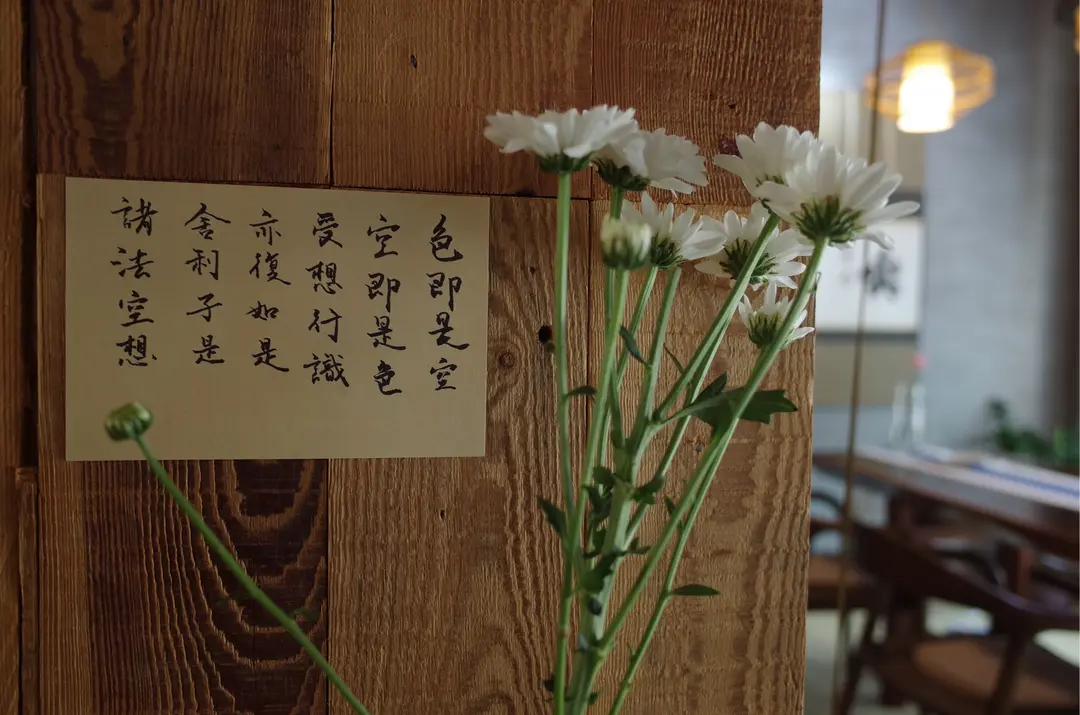 色即是空
空即是色
受想行識
亦復如是
舍利子是
諸法空想